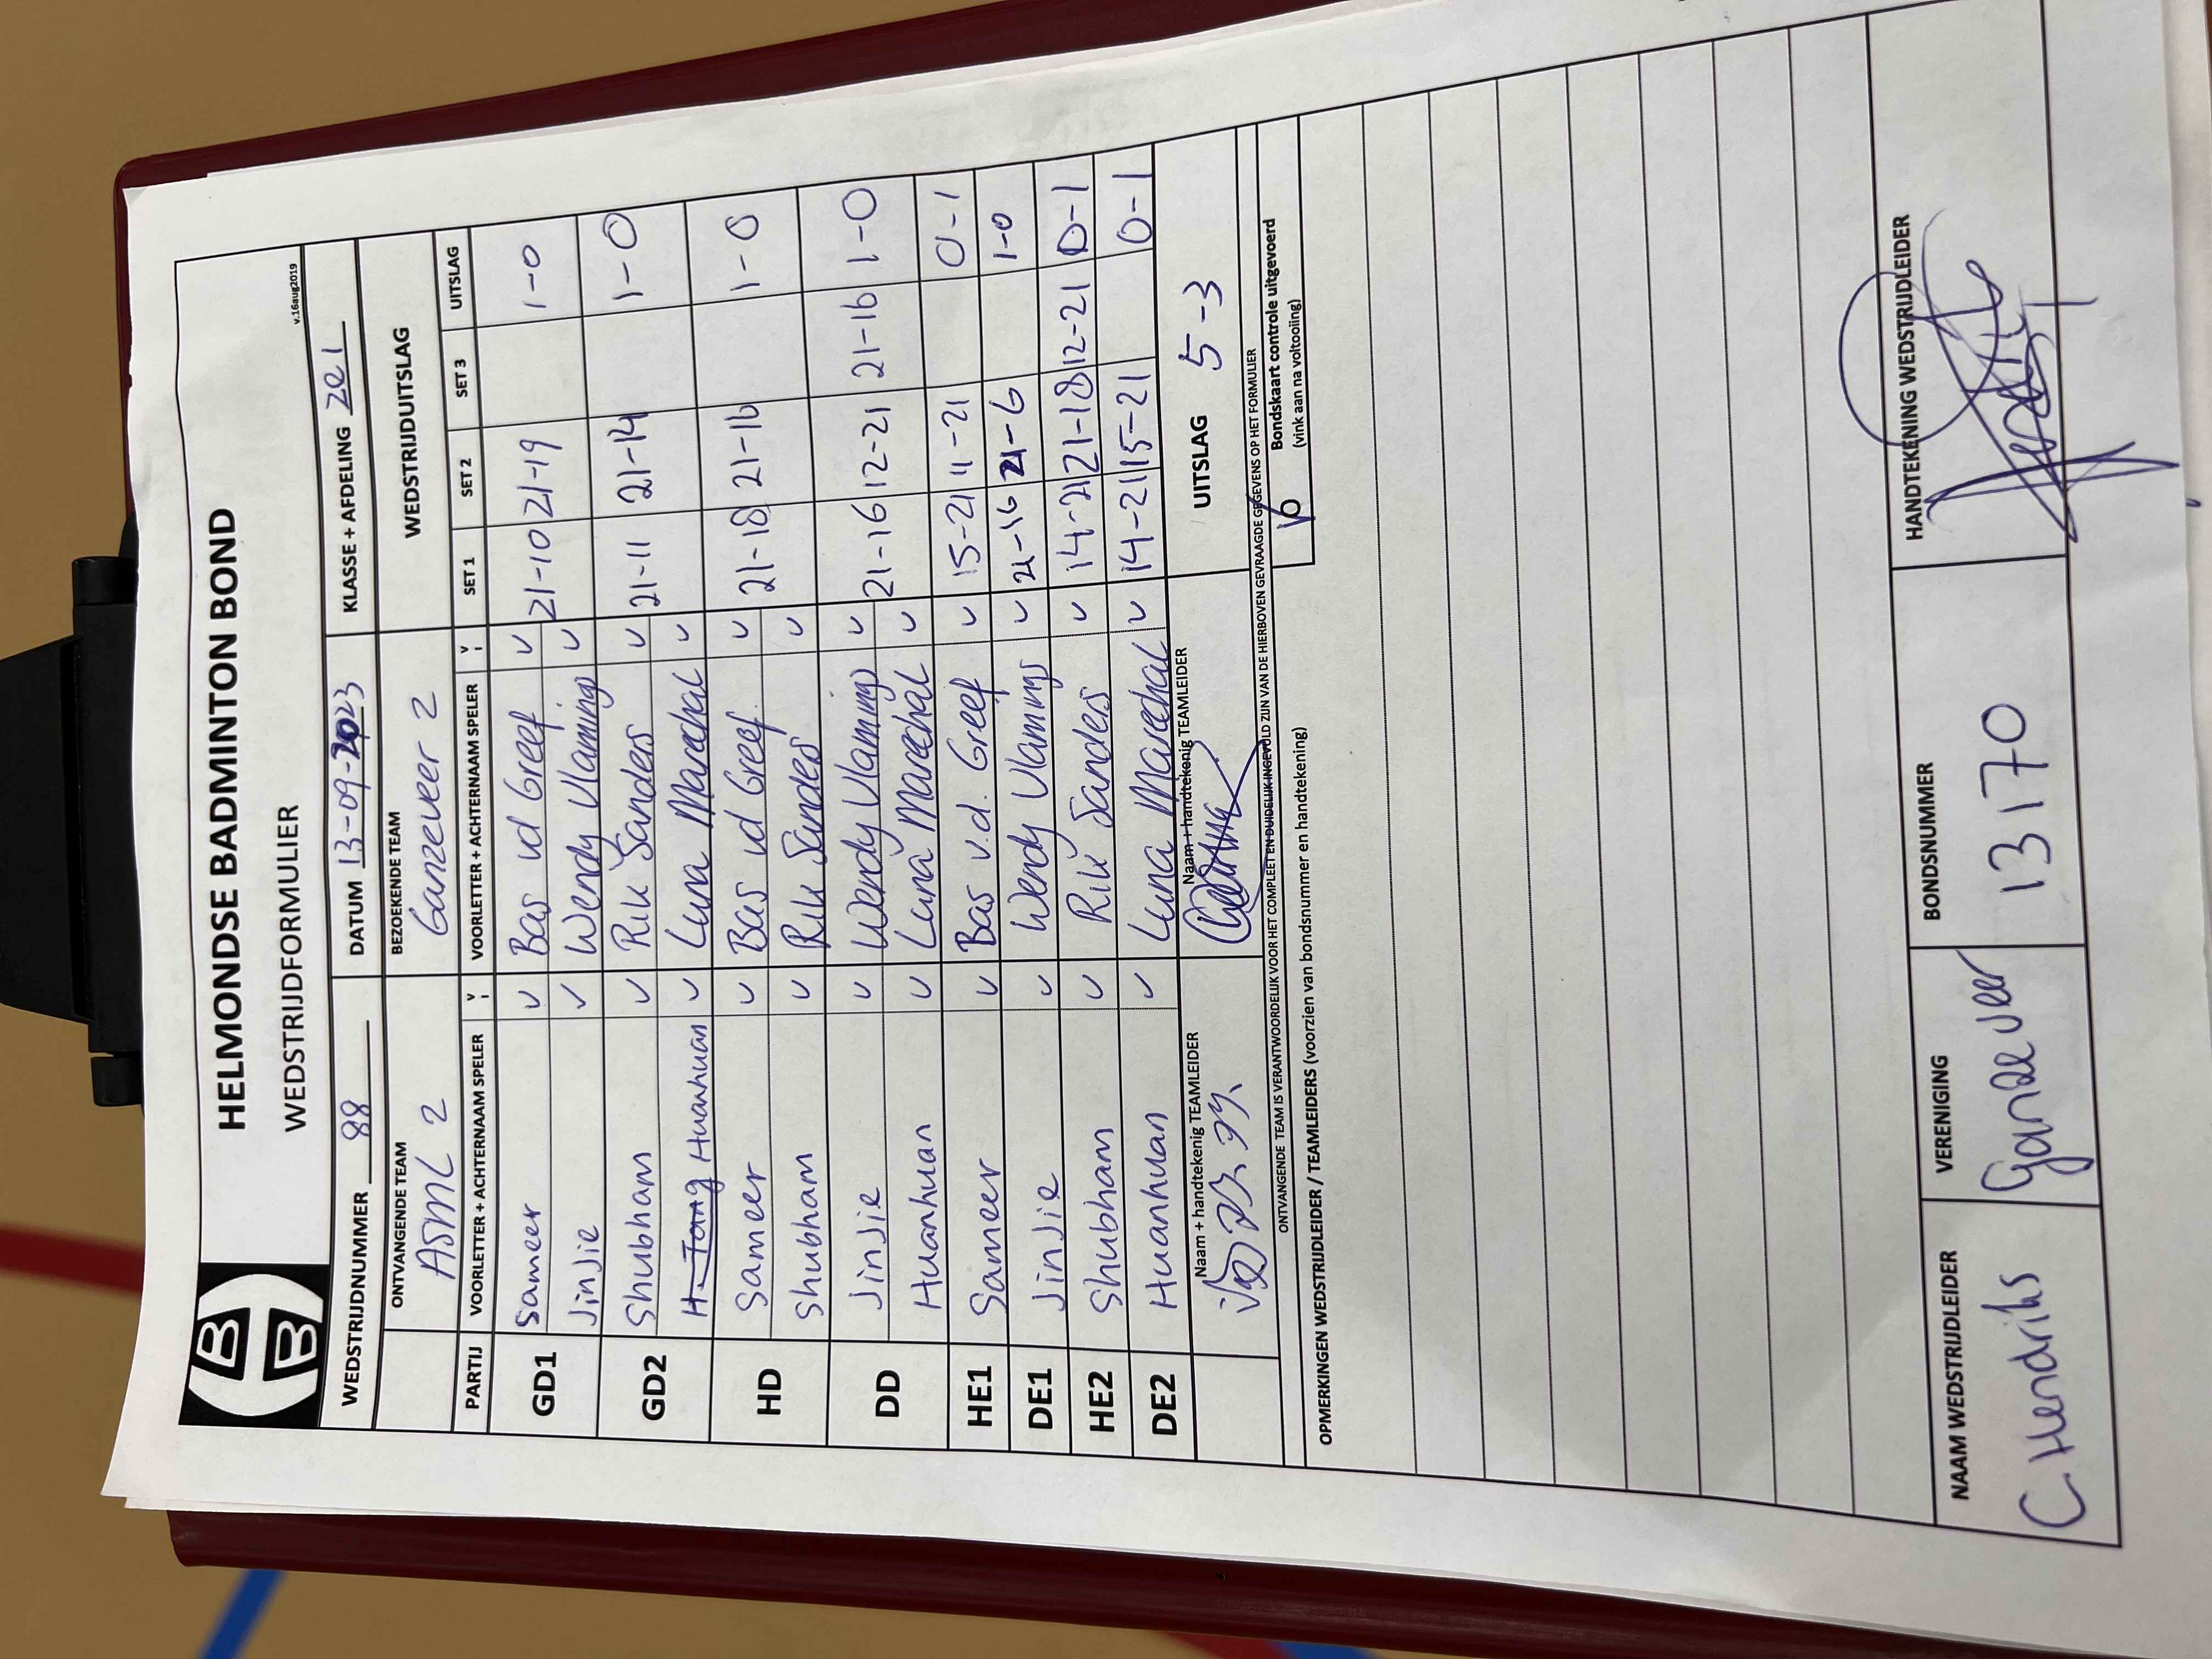 HELMONDSE BADMINTON BOND
WEDSTRIJDFORMULIER
v.16aug2019
WEDSTRIJDNUMMER 88 DATUM 13-09-2023 KLASSE + AFDELING 2e 1
ONTVANGENDE TEAM BEZOEKENDE TEAM WEDSTRIJDUITSLAG
ASML 2 Ganzeveer 2
PARTIJ VOORLETTER + ACHTERNAAM SPELER V VOORLETTER + ACHTERNAAM SPELER V SET 1 SET 2 SET 3 UITSLAG
GD1 Sameer v Bas vd Greef v 21-10 21-19 1-0
JinJie v Wendy Vlamings v
GD2 Shubham v Rik Sanders v 21-11 21-14 1-0
H. Tang Huanhuan v Luna Marechal v
HD Sameer v Bas vd Greef v 21-18 21-16 1-0
Shubham v Rik Sanders v
DD JinJie v Wendy Vlamings v 21-16 12-21 21-16 1-0
Huanhuan v Luna Marechal v
HE1 Sameer v Bas v.d. Greef v 15-21 11-21 0-1
DE1 JinJie v Wendy Vlamings v 21-16 21-6 1-0
HE2 Shubham v Rik Sanders v 14-21 21-18 12-21 0-1
DE2 Huanhuan v Luna Marechal v 14-21 15-21 0-1
Naam + handtekenig TEAMLEIDER Naam + handtekenig TEAMLEIDER UITSLAG 5-3
ONTVANGENDE TEAM IS VERANTWOORDELIJK VOOR HET COMPLEET EN DUIDELIJK INGEVULD ZIJN VAN DE HIERBOVEN GEVRAAGDE GEGEVENS OP HET FORMULIER
Bondskaart controle uitgevoerd
(vink aan na voltooiing)
OPMERKINGEN WEDSTRIJDLEIDER / TEAMLEIDERS (voorzien van bondsnummer en handtekening)
NAAM WEDSTRIJDLEIDER VERENIGING BONDSNUMMER HANDTEKENING WEDSTRIJDLEIDER
C Hendriks Ganzeveer 13170